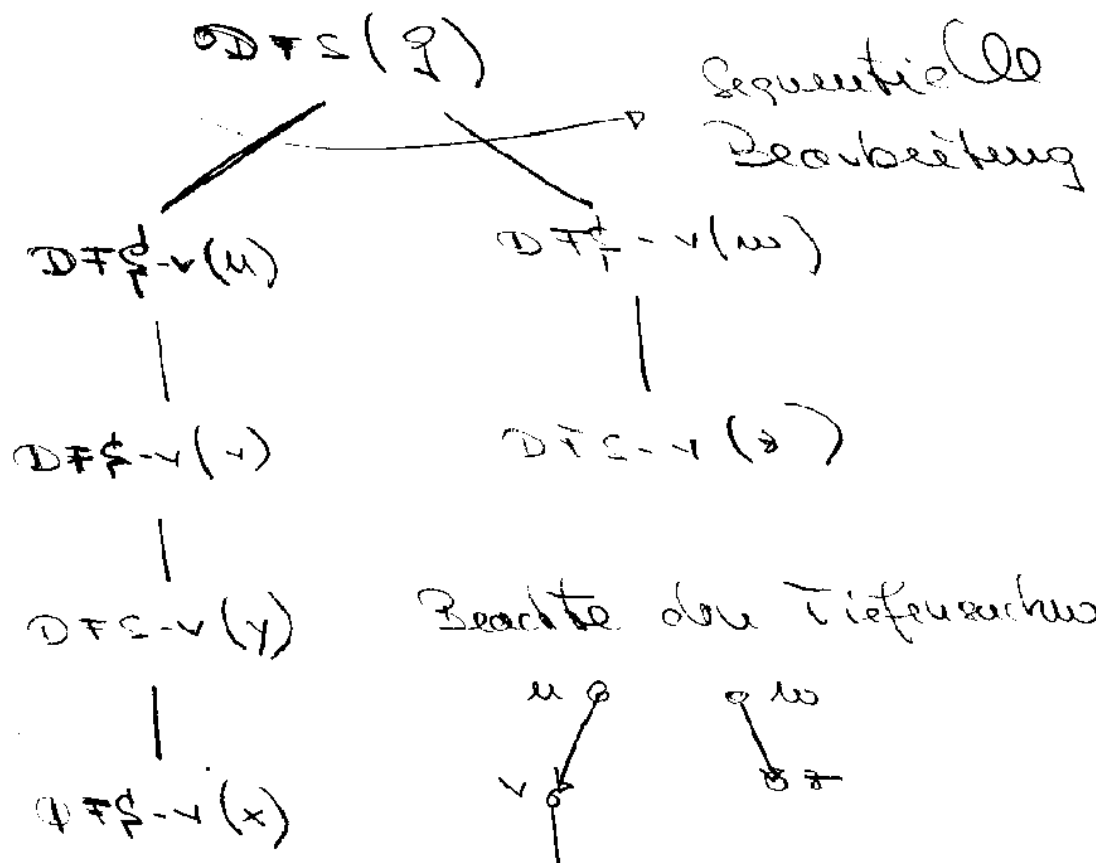 DFS(G)
Sequentielle
Bearbeitung
DFS-v(u)
DFS-v(w)
DFS-v(v)
DFS-v(z)
DFS-v(y)
Beachte den Tiefensuchw
u
w
v
z
DFS-v(x)